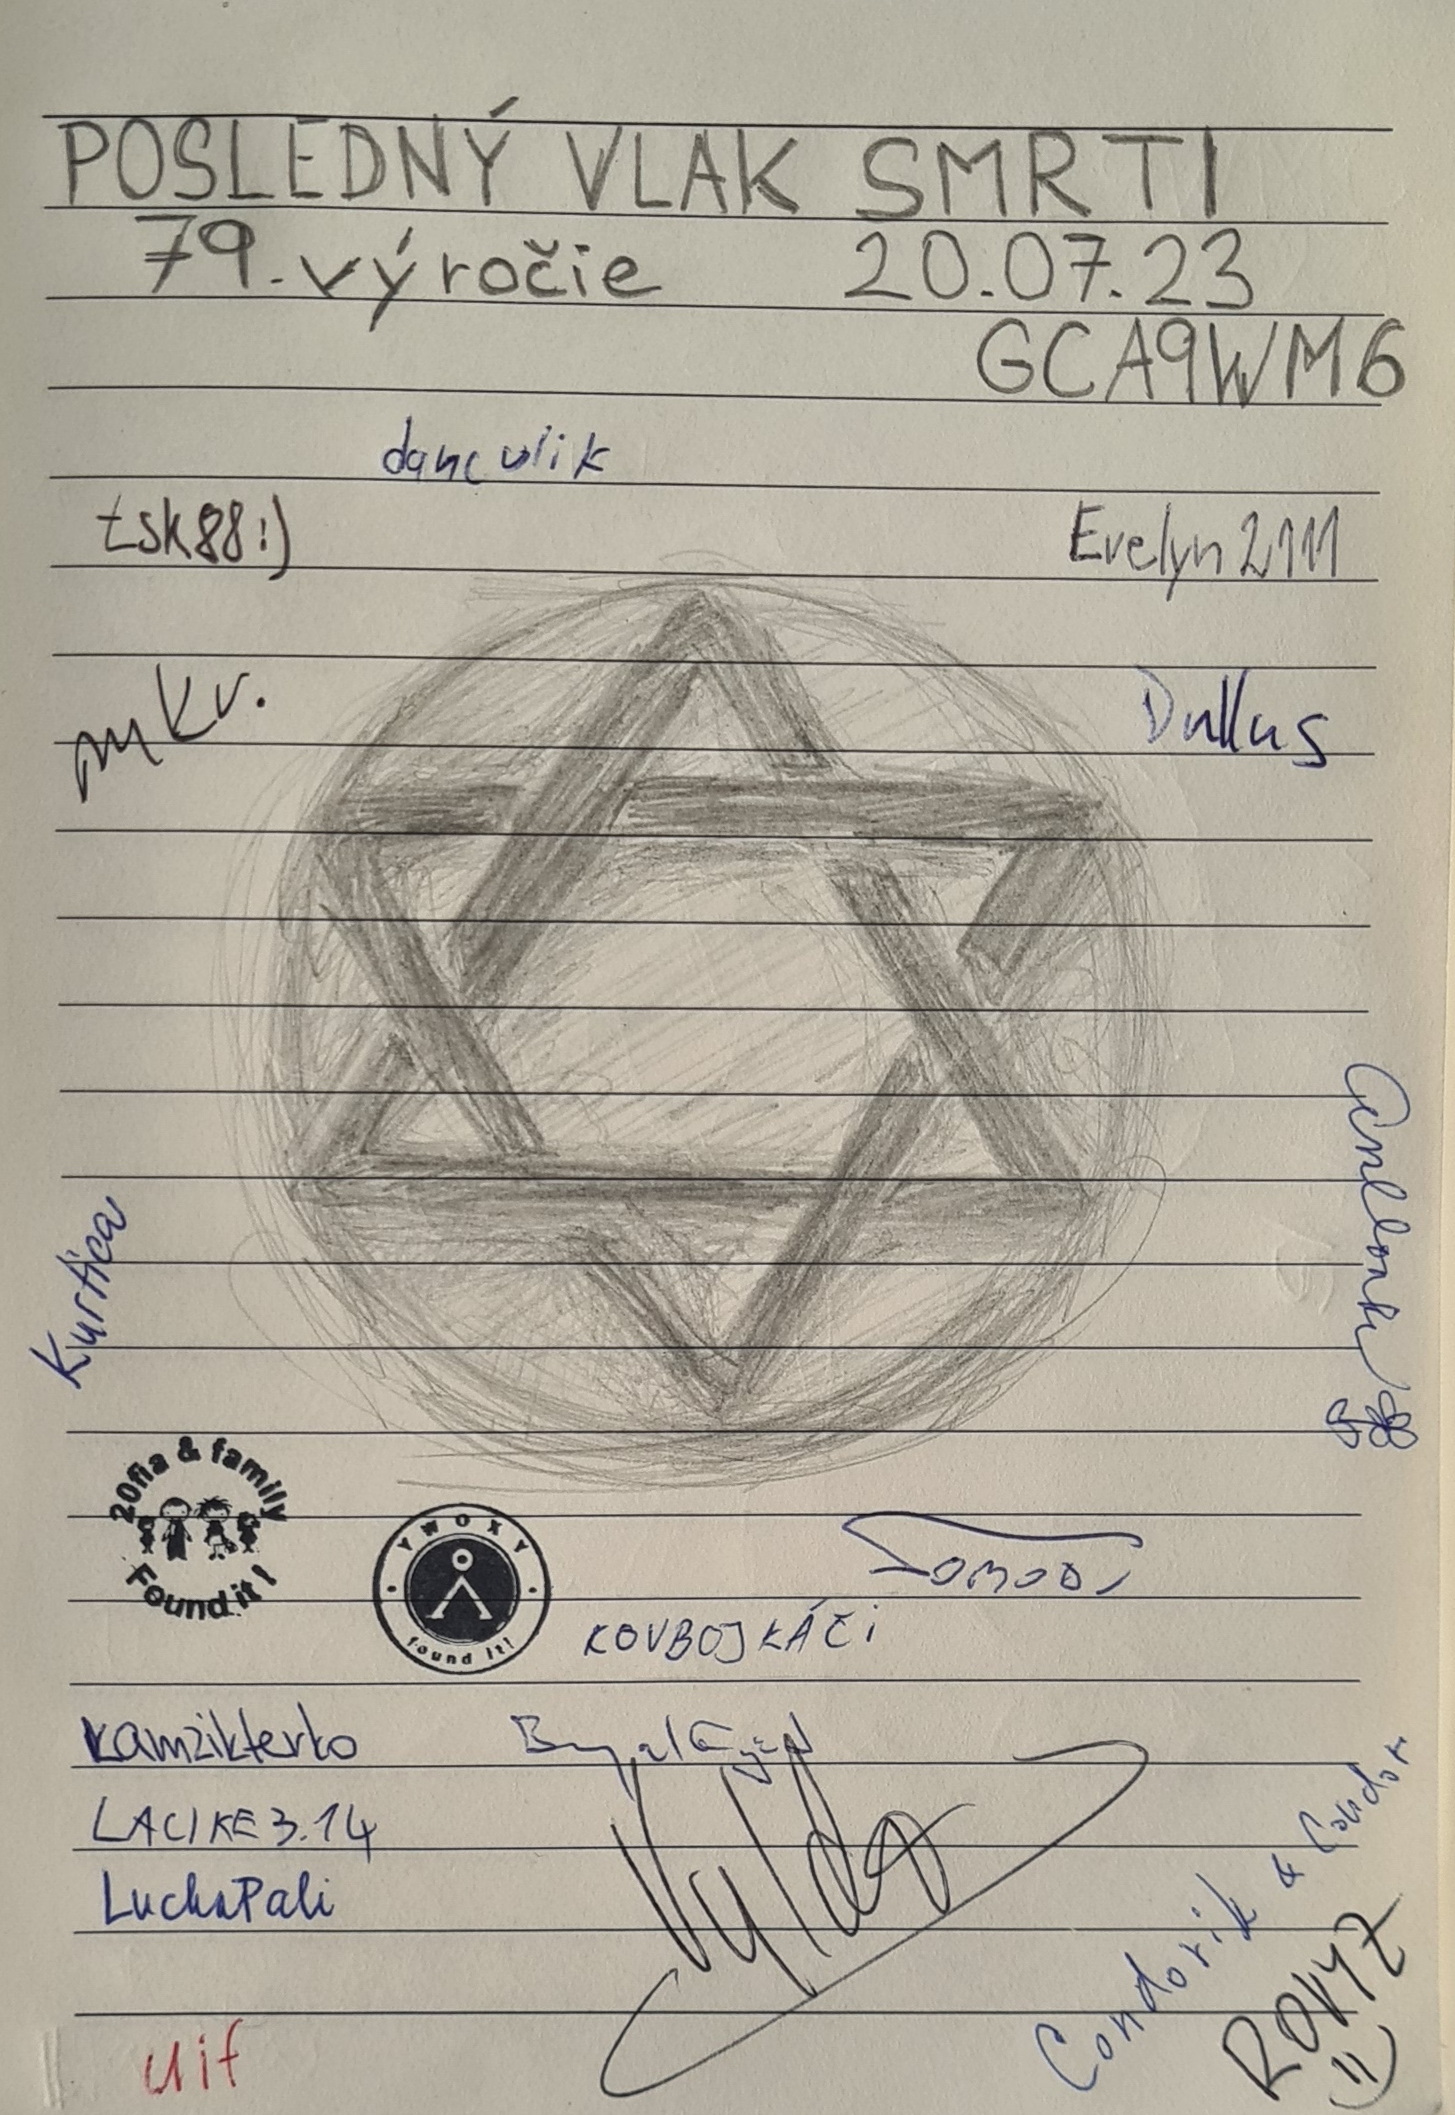 POSLEDNÝ VLAK SMRTI
79. výročie 20.07.23
GCA9WM6
danculik
tsk88:) Evelyn2111
mkv. Dullus
Kurtica
20fia & family
Found it!
YWOXY
found it!
KOVBOJKÁČI
kamzikterko
LACIKE3.14
LuckaPali
Condorik & Condor
ROVYZ
uif